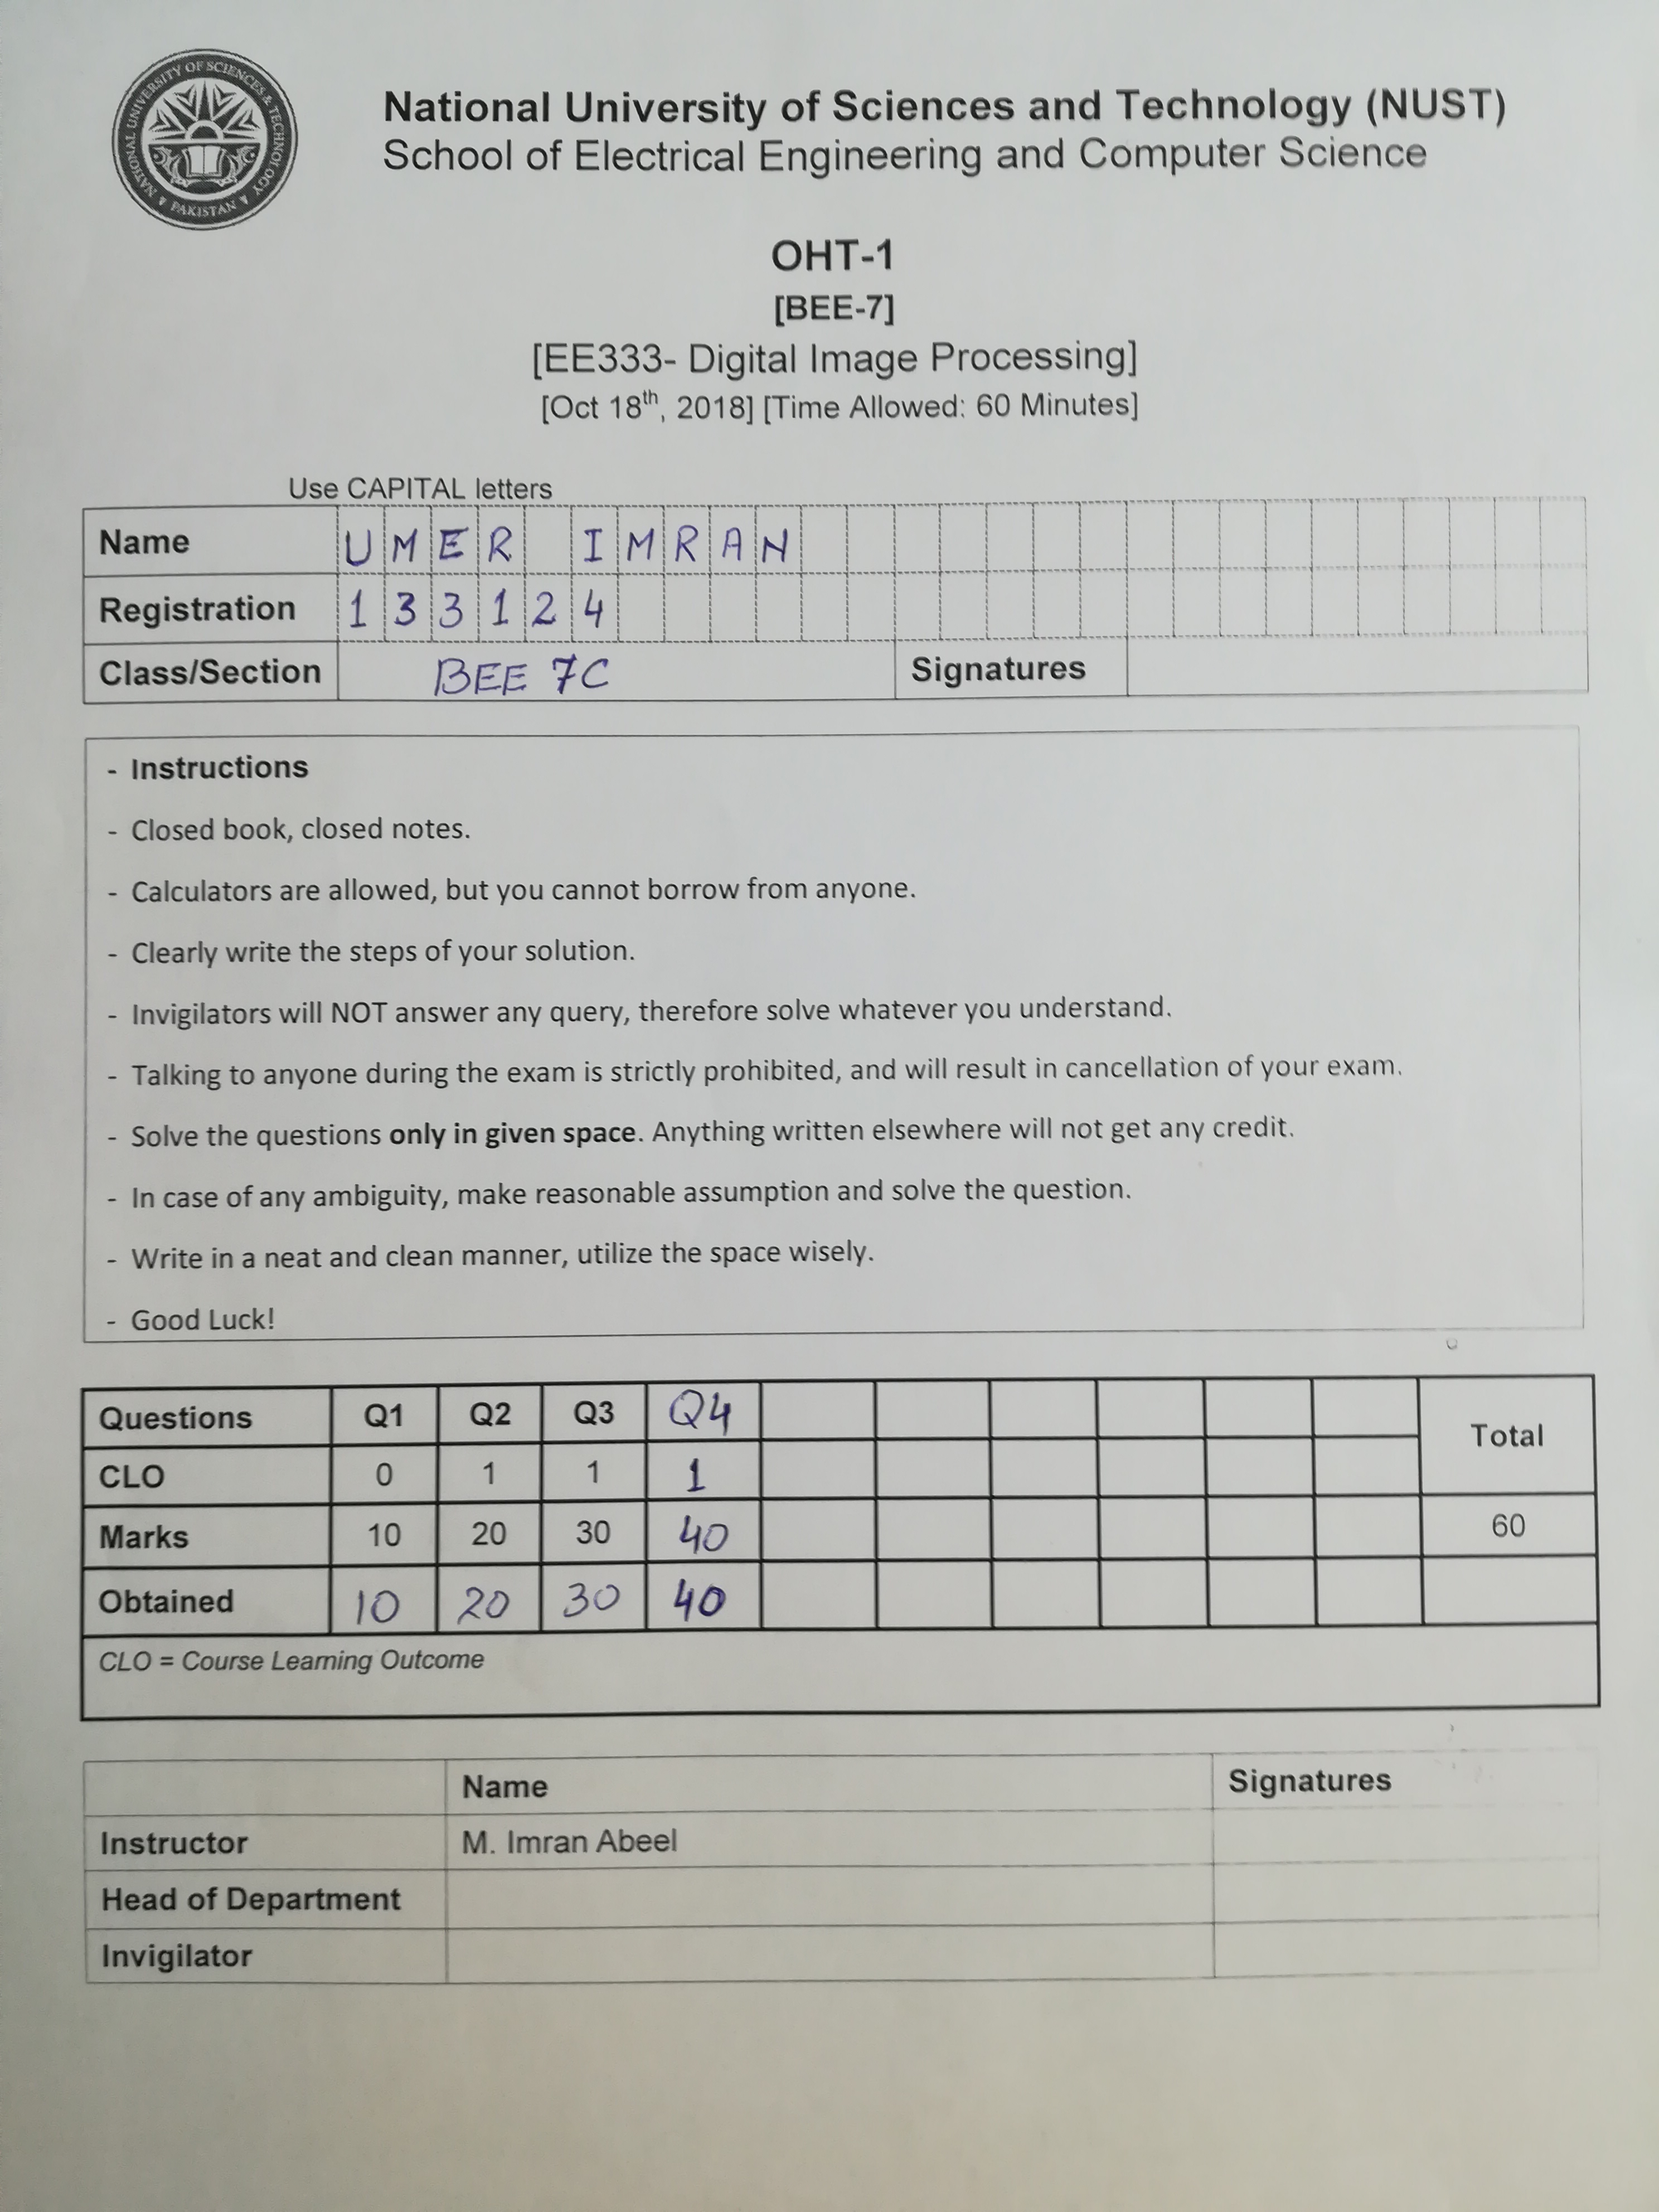 NATIONAL UNIVERSITY OF SCIENCES & TECHNOLOGY
PAKISTAN
National University of Sciences and Technology (NUST)
School of Electrical Engineering and Computer Science
OHT-1
[BEE-7]
[EE333- Digital Image Processing]
[Oct 18th, 2018] [Time Allowed: 60 Minutes]
Use CAPITAL letters
Name UMER IMRAN
Registration 133124
Class/Section BEE 7C Signatures
- Instructions
- Closed book, closed notes.
- Calculators are allowed, but you cannot borrow from anyone.
- Clearly write the steps of your solution.
- Invigilators will NOT answer any query, therefore solve whatever you understand.
- Talking to anyone during the exam is strictly prohibited, and will result in cancellation of your exam.
- Solve the questions only in given space. Anything written elsewhere will not get any credit.
- In case of any ambiguity, make reasonable assumption and solve the question.
- Write in a neat and clean manner, utilize the space wisely.
- Good Luck!
Questions Q1 Q2 Q3 Q4 Total
CLO 0 1 1 1
Marks 10 20 30 40 60
Obtained 10 20 30 40
CLO = Course Learning Outcome
Name Signatures
Instructor M. Imran Abeel
Head of Department
Invigilator